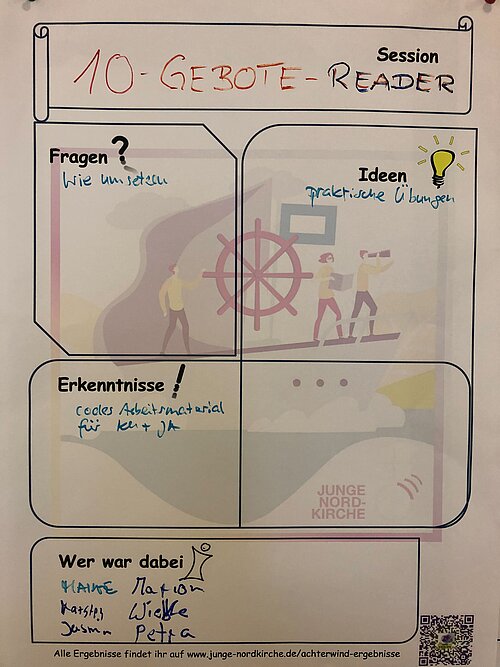 Session
10-GEBOTE-READER
Fragen ?
Wie umsetzen
Ideen
praktische Übungen
Erkenntnisse !
cooles Arbeitsmaterial
für KU + JA
JUNGE
NORD-
KIRCHE
Wer war dabei
Marion
Wiebke
Jasmin Petra
Alle Ergebnisse findet ihr auf www.junge-nordkirche.de/achterwind-ergebnisse